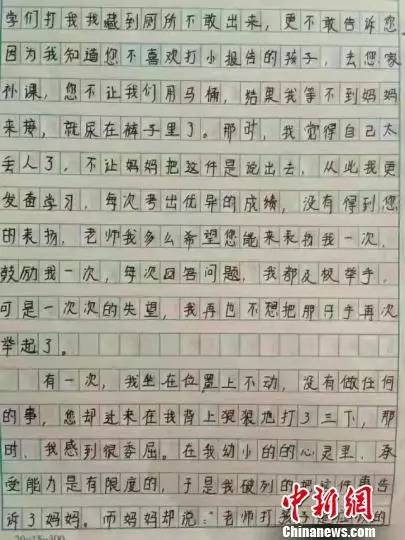 学们打我我藏到厕所不敢出来，更不敢告诉您.
因为我知道您不喜欢打小报告的孩子，去您家
补课，您不让我们用马桶，结果我等不到妈妈
来接，就尿在裤子里了。那时，我觉得自己太
丢人了，不让妈妈把这件是说出去，从此我更
发奋学习，每次考出优异的成绩，没有得到您
的表扬，老师我多么希望您能来表扬我一次，
鼓励我一次，每次回答问题，我都及极举手，
可是一次次的失望，我再也不想把那只手再次
举起了。
有一次，我坐在位置上不动，没有做任何
的事，您却进来在我背上狠狠地打了三下，那
时，我感到很委屈。在我幼小的的心灵里，承
受能力是有限度的，于是我破列的把这件事告
诉了妈妈。而妈妈却说："老师打孩子是
20×15=300
中新网
CHINANEWS.COM